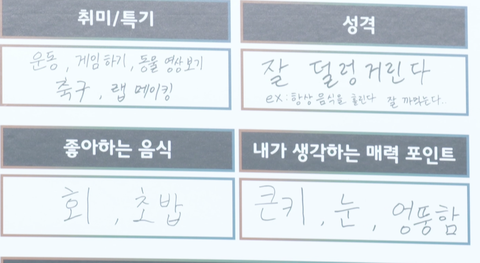 취미/특기
운동, 게임하기, 동물 영상보기
축구, 랩 메이킹
성격
잘 덜렁거린다
ex: 항상 음식을 흘린다 잘 까먹는다.
좋아하는 음식
회, 초밥
내가 생각하는 매력 포인트
큰키, 눈, 엉뚱함